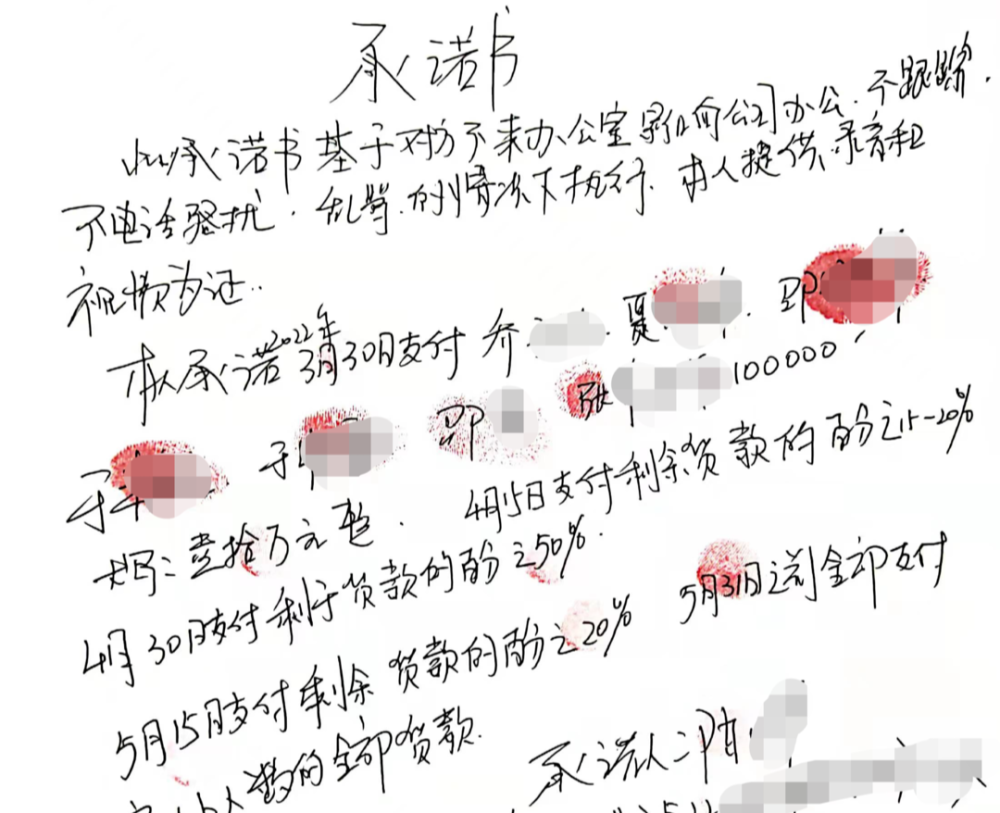 承诺书
此承诺书基于对方不来办公室影响公司办公.不跟踪.
不电话骚扰.乱骂.的情况下执行.本人提供录音和
视频为证..
本人承诺2022年3月30日支付乔 夏 邵
于 于 邵 张 100000
大写:壹拾万元整. 4月5日支付剩余货款的百分之15-20%
4月30日支付剩于货款的百分之50%.
5月15日支付剩余货款的百分之20% 5月31日之前全部支付
人数的全部货款.
承诺人:邵